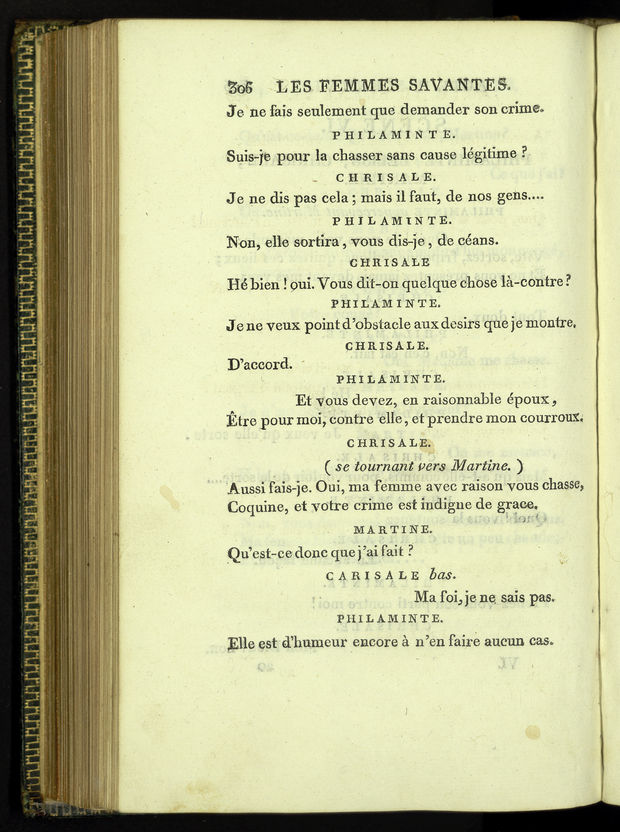 306 LES FEMMES SAVANTES.
Je ne fais seulement que demander son crime.
PHILAMINTE.
Suis-je pour la chasser sans cause légitime ?
CHRISALE.
Je ne dis pas cela ; mais il faut, de nos gens....
PHILAMINTE.
Non, elle sortira, vous dis-je, de céans.
CHRISALE
Hé bien ! oui. Vous dit-on quelque chose là-contre ?
PHILAMINTE.
Je ne veux point d'obstacle aux desirs que je montre.
CHRISALE.
D'accord.
PHILAMINTE.
Et vous devez, en raisonnable époux,
Être pour moi, contre elle, et prendre mon courroux.
CHRISALE.
( se tournant vers Martine. )
Aussi fais-je. Oui, ma femme avec raison vous chasse,
Coquine, et votre crime est indigne de grace.
MARTINE.
Qu'est-ce donc que j'ai fait ?
CARISALE bas.
Ma foi, je ne sais pas.
PHILAMINTE.
Elle est d'humeur encore à n'en faire aucun cas.